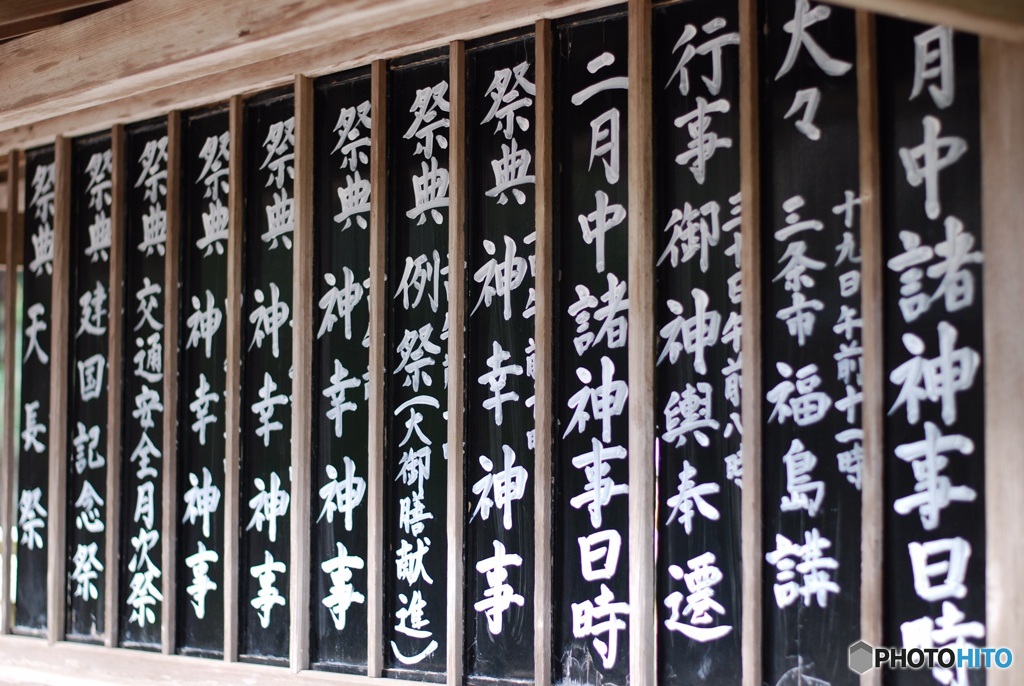 月中諸神事日時
大々 十九日午前十一時
三条市福島講
行事御神輿奉遷
三十日午前八時
二月中諸神事日時
祭典 神幸神事
祭典 例祭(大御膳献進)
祭典 神幸神事
祭典 神幸神事
祭典 神幸神事
祭典 交通安全月次祭
祭典 建国記念祭
祭典 天長祭
PHOTOHITO